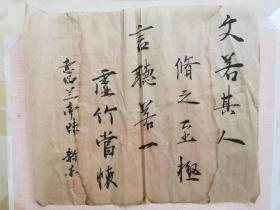 文若其人
脩之至極
言聽若一
虛竹當懷
意临兰亭味